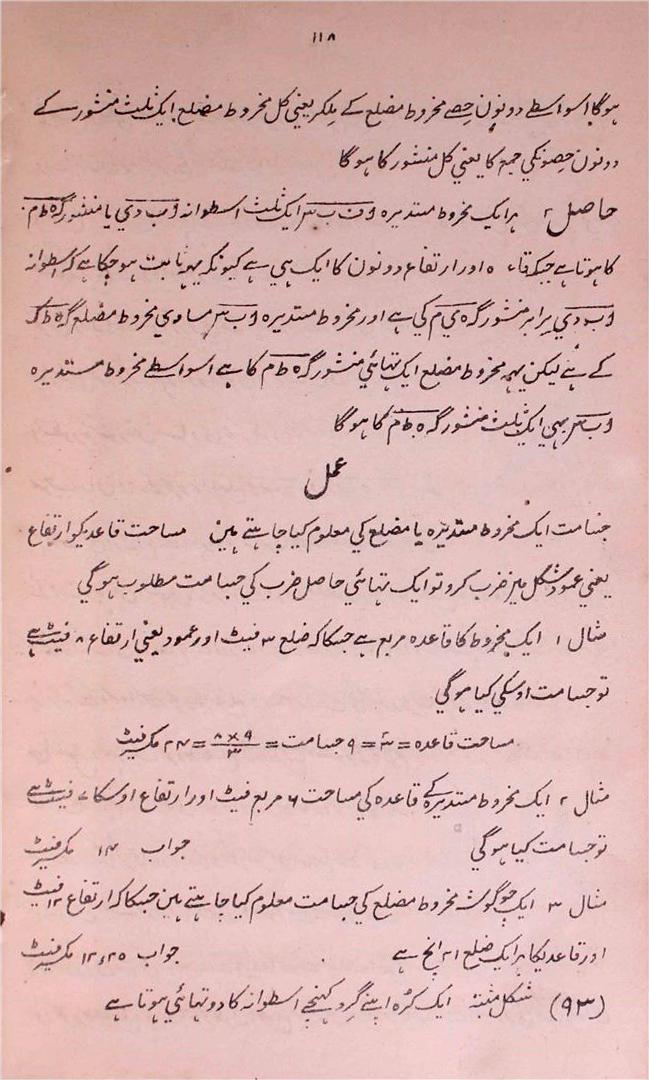 ۱۱۸
ہوگا اسواسطے دونون حصے مخروط مضلع کے ملکر یعنی کل مخروط مضلع ایک ثلث منشور کے
دونون حصونکی جمع کا یعنی کل منشور کا ہوگا
حاصل ۲ ہر ایک مخروط مستدیرہ ایک ثلث اسطوانہ ا ب د ی یا منشور گ ہ ط م
کا ہوتا ہے جبکہ قاعدہ اور ارتفاع دونون کا ایک ہی ہے کیونکہ یہہ ثابت ہو چکا ہے کہ اسطوانہ
ا ب د ی برابر منشور گ ہ ی م کی ہے اور مخروط مستدیرہ ا ب س مساوی مخروط مضلع گ ہ ط ک
کے ہے لیکن یہہ مخروط مضلع ایک تہائی منشور گ ہ ط م کا ہے اسواسطے مخروط مستدیرہ
ا ب س بہی ایک ثلث منشور گ ہ ط م کا ہوگا
عمل
جسامت ایک مخروط مستدیرہ یا مضلع کی معلوم کیا چاہتے ہین مساحت قاعدیکو ارتفاع
یعنی عمود شکل مین ضرب کرو تو ایک تہائی حاصل ضرب کی جسامت مطلوب ہوگی
مثال ۱ ایک مخروط کا قاعدہ مربع ہے جسکا کہ ضلع ۳ فیٹ اور عمود یعنی ارتفاع ۸ فیٹ ہے
تو جسامت اوسکی کیا ہوگی
مساحت قاعدہ = ۳<sup>۲</sup> = ۹ جسامت = ۸×۹/۳ = ۲۴ مکسر فیٹ
مثال ۲ ایک مخروط مستدیرہ کے قاعدہ کی مساحت ۶ مربع فیٹ اور ارتفاع اوسکا ۷ فیٹ ہے
تو جسامت کیا ہوگی جواب ۱۴ مکسر فیٹ
مثال ۳ ایک چوگوشہ مخروط مضلع کی جسامت معلوم کیا چاہتے ہین جسکا کہ ارتفاع ۱۲ فیٹ
اور قاعدیکا ہر ایک ضلع ۲۱ انچ ہے جواب ۱۲٫۲۵ مکسر فیٹ
(۹۳) شکل مثبتہ ایک کرہ اپنے گرد کہنچے اسطوانہ کا دو تہائی ہوتا ہے